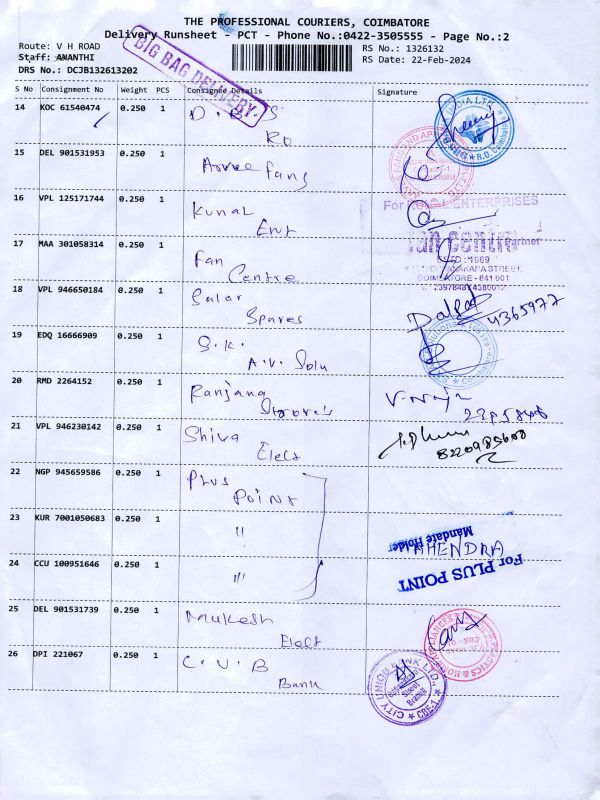 THE PROFESSIONAL COURIERS, COIMBATORE
Delivery Runsheet - PCT - Phone No.:0422-3505555 - Page No.:2
Route: V H ROAD
RS No.: 1326132
Staff: ANANTHI
RS Date: 22-Feb-2024
DRS No.: DCJB132613202
BIG BAG DELIVERY
S No Consignment No Weight PCS Consignee Details Signature
14 KOC 61540474 0.250 1 D.B.S
RO
15 DEL 901531953 0.250 1 Arvee Fans
16 VPL 125171744 0.250 1 Kunal
Ent
For KUNAL ENTERPRISES
Partner
17 MAA 301058314 0.250 1 Fan
Centre
Fan Centre
ESTD : 1969
COIMBATORE - 641 001
18 VPL 946650184 0.250 1 Salar
Spares
4365977
19 EDQ 16666909 0.250 1 S.K.
A.V. Solu
20 RMD 2264152 0.250 1 Ranjana
Stores
21 VPL 946230142 0.250 1 Shiva
Elect
8220985608
22 NGP 945659586 0.250 1 Plus
Point
23 KUR 7001050683 0.250 1 "
MAHENDRA
Mandate Holder
24 CCU 100951646 0.250 1 "'
For PLUS POINT
25 DEL 901531739 0.250 1 Mukesh
Elect
26 DPI 221067 0.250 1 C.U.B
Bank
CITY UNION BANK LTD.
CBE-1